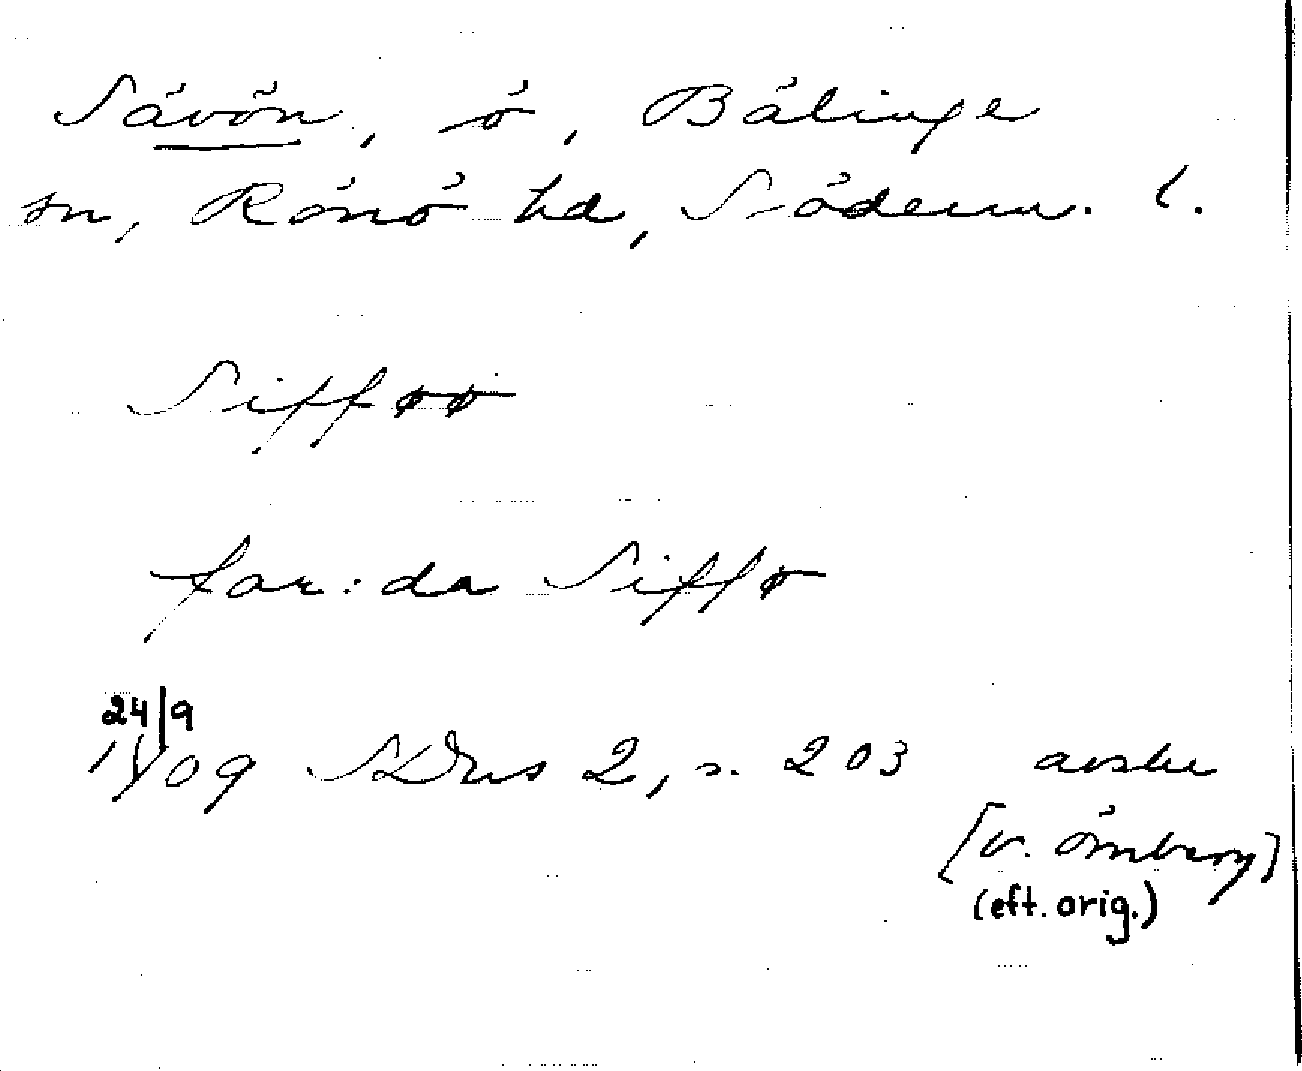 Sävön, ö, Bälinge
sn, Rönö hd, Södermanl. l.
Siffoo
far: da Siffo
24/9
1909 SKDms 2, s. 203 avskr
[v. Örnberg]
(eft. orig.)